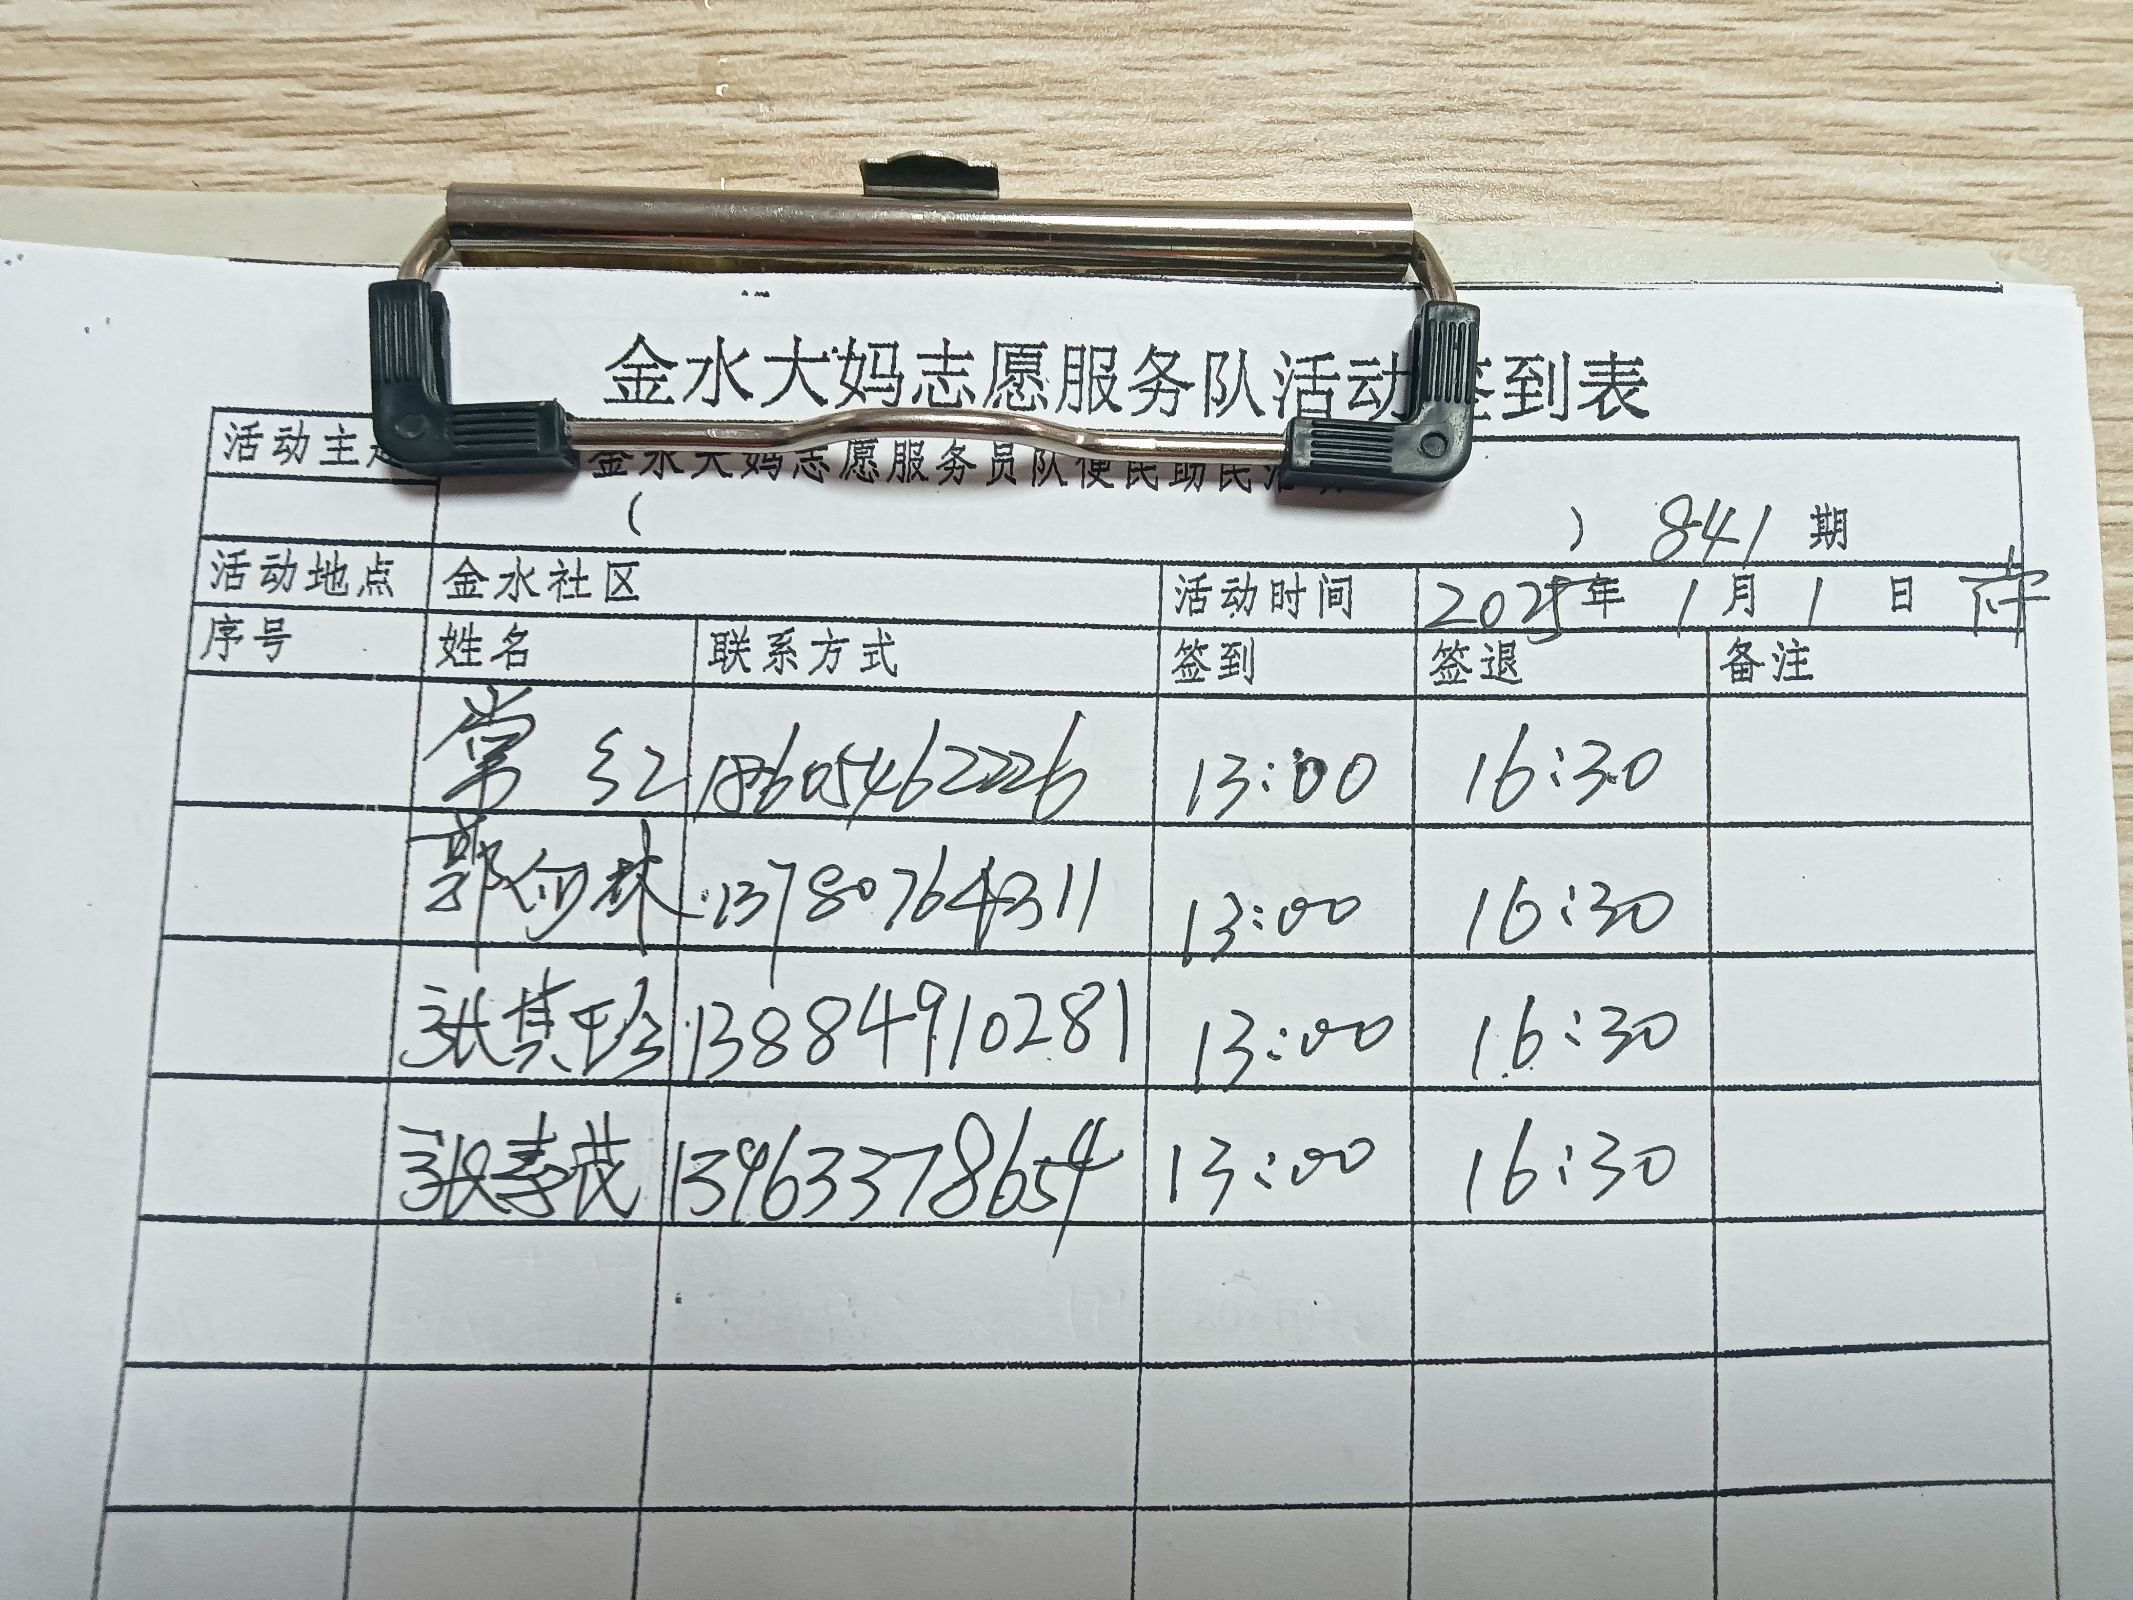 金水大妈志愿服务队活动签到表
活动主题 金水大妈志愿服务员队便民助民活动
( ) 841期
活动地点 金水社区 活动时间 2025年1月1日 下午
序号 姓名 联系方式 签到 签退 备注
常红 18605462226 13:00 16:30
郭 林 13780764311 13:00 16:30
张其珍 13884910281 13:00 16:30
张春茂 13963378654 13:00 16:30